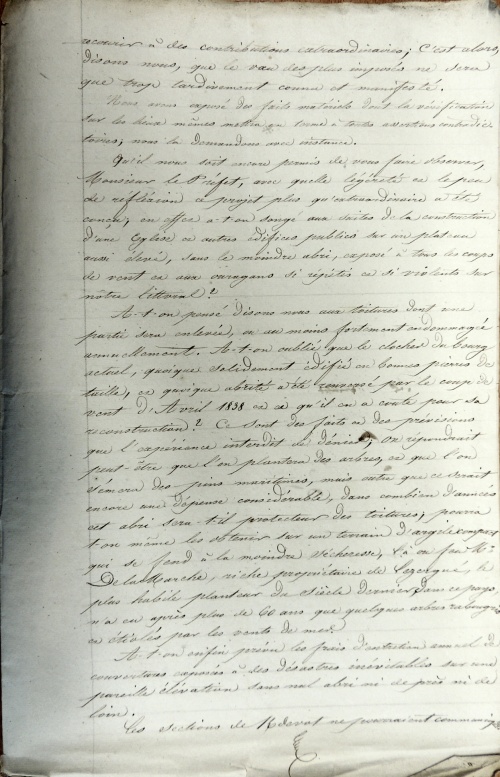 recourir à des contributions extraordinaires; C'est alors,
disons nous, que le vœu des plus imposés ne sera
que trop tardivement connu et manifesté.
Nous avons exposé des faits matériels dont la vérification
sur les lieux mêmes mettra un terme à toutes assertions contradic
toires; nous la demandons avec instance.
Qu'il nous soit encore permis de vous faire observer,
Monsieur le Préfet, avec quelle légèreté et le peu
de réfléxion ce projet plus qu'extraordinaire a été
conçu; en effet a-t-on songé aux suites de la construction
d'une Eglise et autres édifices publics sur un plateau
aussi élevé, sans le moindre abri, exposé à tous les corps
de vent et aux ouragans si répétés et si violents sur
nôtre littoral?
A-t-on pensé disons nous aux toitures dont une
partie sera enlevée, ou au moins fortement endommagée
annuellement. A-t-on oublié que le clocher du bourg
actuel, quoique solidement édifié en bonnes pierres de
taille, et quoique abrité a été renversé par le coup de
vent d'Avril 1838 et ce qu'il en a couté pour sa
reconstruction? Ce sont des faits et des prévisions
que l'expérience interdit de dénier; On répondrait
peut-être que l'on plantera des arbres, et que l'on
sémera des pins maritimes, mais outre que ce serait
encore une dépense considérable, dans combien d'années
cet abri sera-t-il protecteur des toitures; pourra
t-on même les obtenir sur un terrain d'argile
qui se fend à la moindre sécheresse, là où feu Mr
De la Marche, riche propriétaire de Lezergué, le
plus habile planteur du Siècle dernier dans ce pays,
n'a eu après plus de 60 ans que quelques arbres rabougris
et étiolés par les vents de mer?
A-t-on enfin prévu les frais d'entretien annuel de
couvertures exposées à des désastres inévitables sur une
pareille élévation sans nul abri ni de près ni de
loin.
Les sections de Kdévot ne pourraient